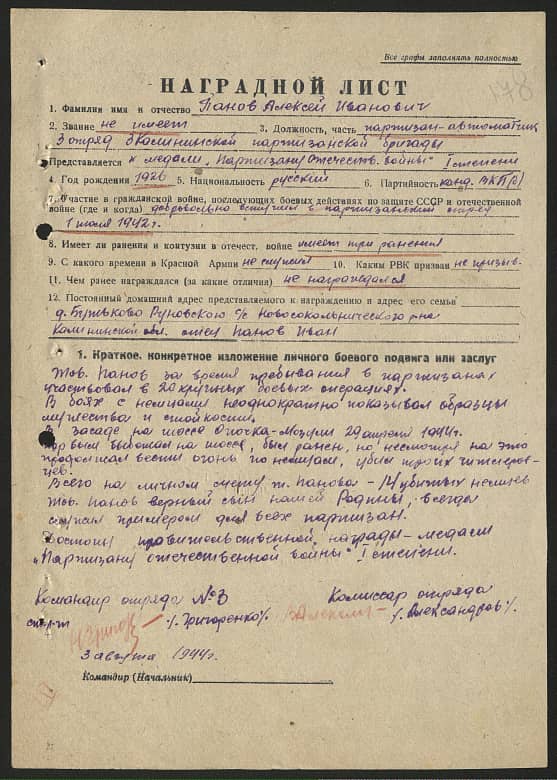 Все графы заполнять полностью
178
НАГРАДНОЙ ЛИСТ
1. Фамилия имя и отчество Панов Алексей Иванович
2. Звание не имеет 3. Должность, часть партизан-автоматчик
3 отряд 3 Калининской партизанской бригады
Представляется к медали „Партизану Отечеств. войны" I степени
4. Год рождения 1926 5. Национальность русский 6. Партийность канд. ВКП(б)
7. Участие в гражданской войне, последующих боевых действиях по защите СССР и отечественной
войне (где и когда) добровольно вступил в партизанский отряд
1 июля 1942г.
8. Имеет ли ранения и контузии в отечест. войне имеет три ранения
9. С какого времени в Красной Армии не служил 10. Каким РВК призван не призыв.
11. Чем ранее награждался (за какие отличия) не награждался
12. Постоянный домашний адрес представляемого к награждению и адрес его семьи
д. Руновского с/с Новосокольнического р-на
Калининской обл. отец Панов Иван
1. Краткое, конкретное изложение личного боевого подвига или заслуг
Тов. Панов за время пребывания в партизанах
участвовал в 20 крупных боевых операциях.
В боях с немцами неоднократно показывал образцы
мужества и стойкости.
В засаде на шоссе Опочка-Мозули 29 апреля 1944г.
первым выбежал на шоссе, был ранен, но несмотря на это
продолжал вести огонь по немцам, убил троих гитлеров-
цев.
Всего на личном счету т. Панова - 14 убитых немцев
Тов. Панов верный сын нашей Родины, всегда
служил примером для всех партизан.
Достоин правительственной награды - медали
„Партизану отечественной войны" I степени.
Командир отряда №3 Комиссар отряда
ст. л-т /Григоренко/ /Александров/.
3 августа 1944г.
Командир (Начальник)